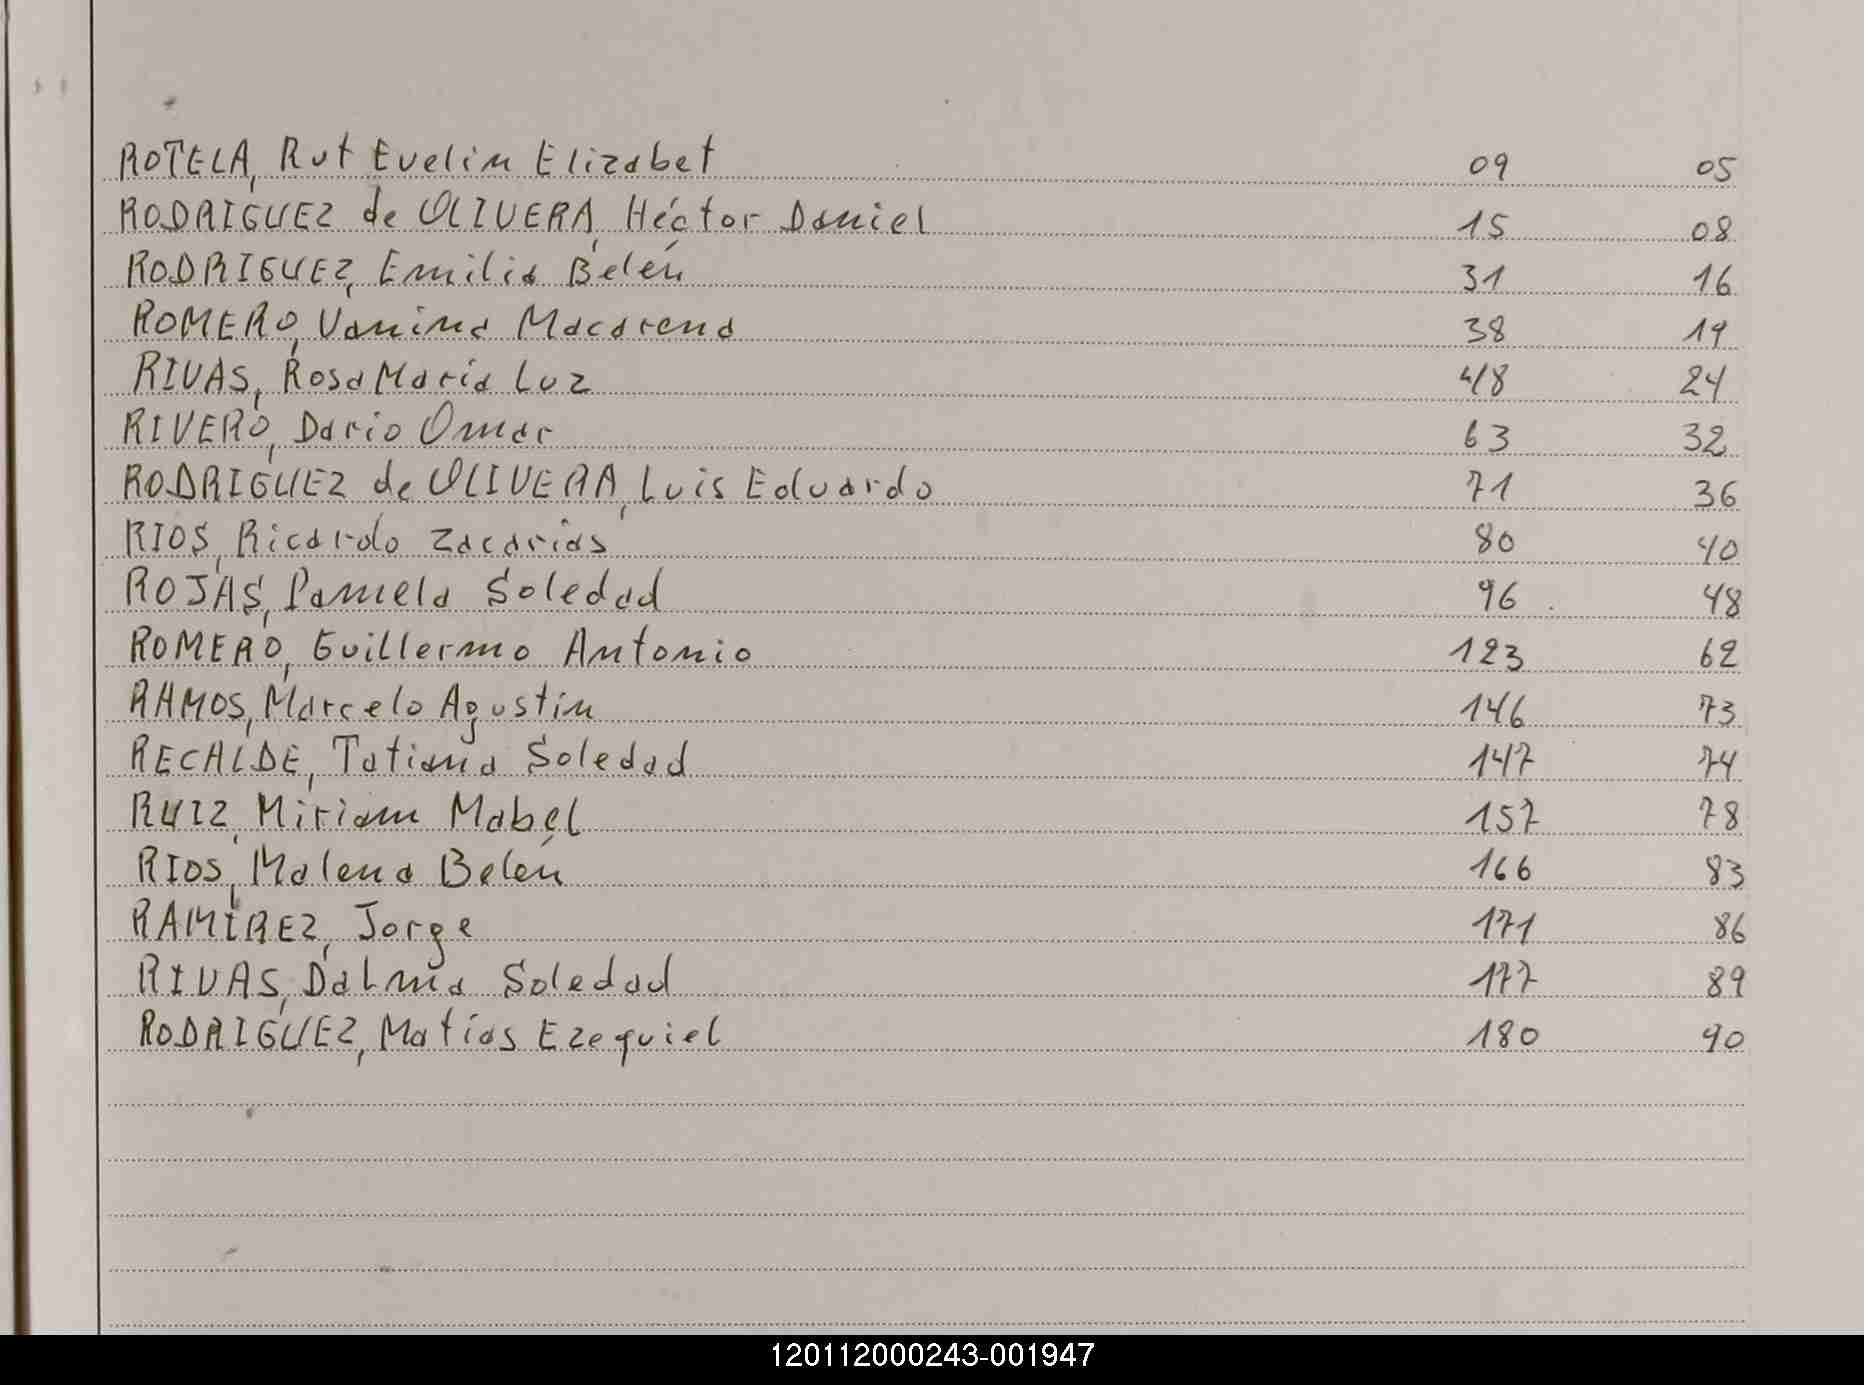 ROTELA, Rut Evelin Elizabet 09 05
RODRIGUEZ de OLIVERA, Héctor Daniel 15 08
RODRIGUEZ, Emilia Belén 31 16
ROMERO, Vanina Macarena 38 19
RIVAS, Rosa Maria Luz 48 24
RIVERO, Dario Omar 63 32
RODRIGUEZ de OLIVERA, Luis Eduardo 71 36
RIOS, Ricardo Zacarias 80 40
ROJAS, Pamela Soledad 96 48
ROMERO, Guillermo Antonio 123 62
RAMOS, Marcelo Agustin 146 73
RECALDE, Tatiana Soledad 147 74
RUIZ, Miriam Mabel 157 78
RIOS, Malena Belén 166 83
RAMÍREZ, Jorge 171 86
RIVAS, Dalma Soledad 177 89
RODRIGUEZ, Matias Ezequiel 180 90
120112000243-001947